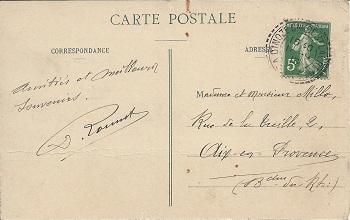 CARTE POSTALE
CORRESPONDANCE
ADRESSE
Amitiés et meilleurs
souvenirs.
Madame et Monsieur Millo,
Rue de la Treille, 2,
Aix-en-Provence
(Bches du Rhô)
5c